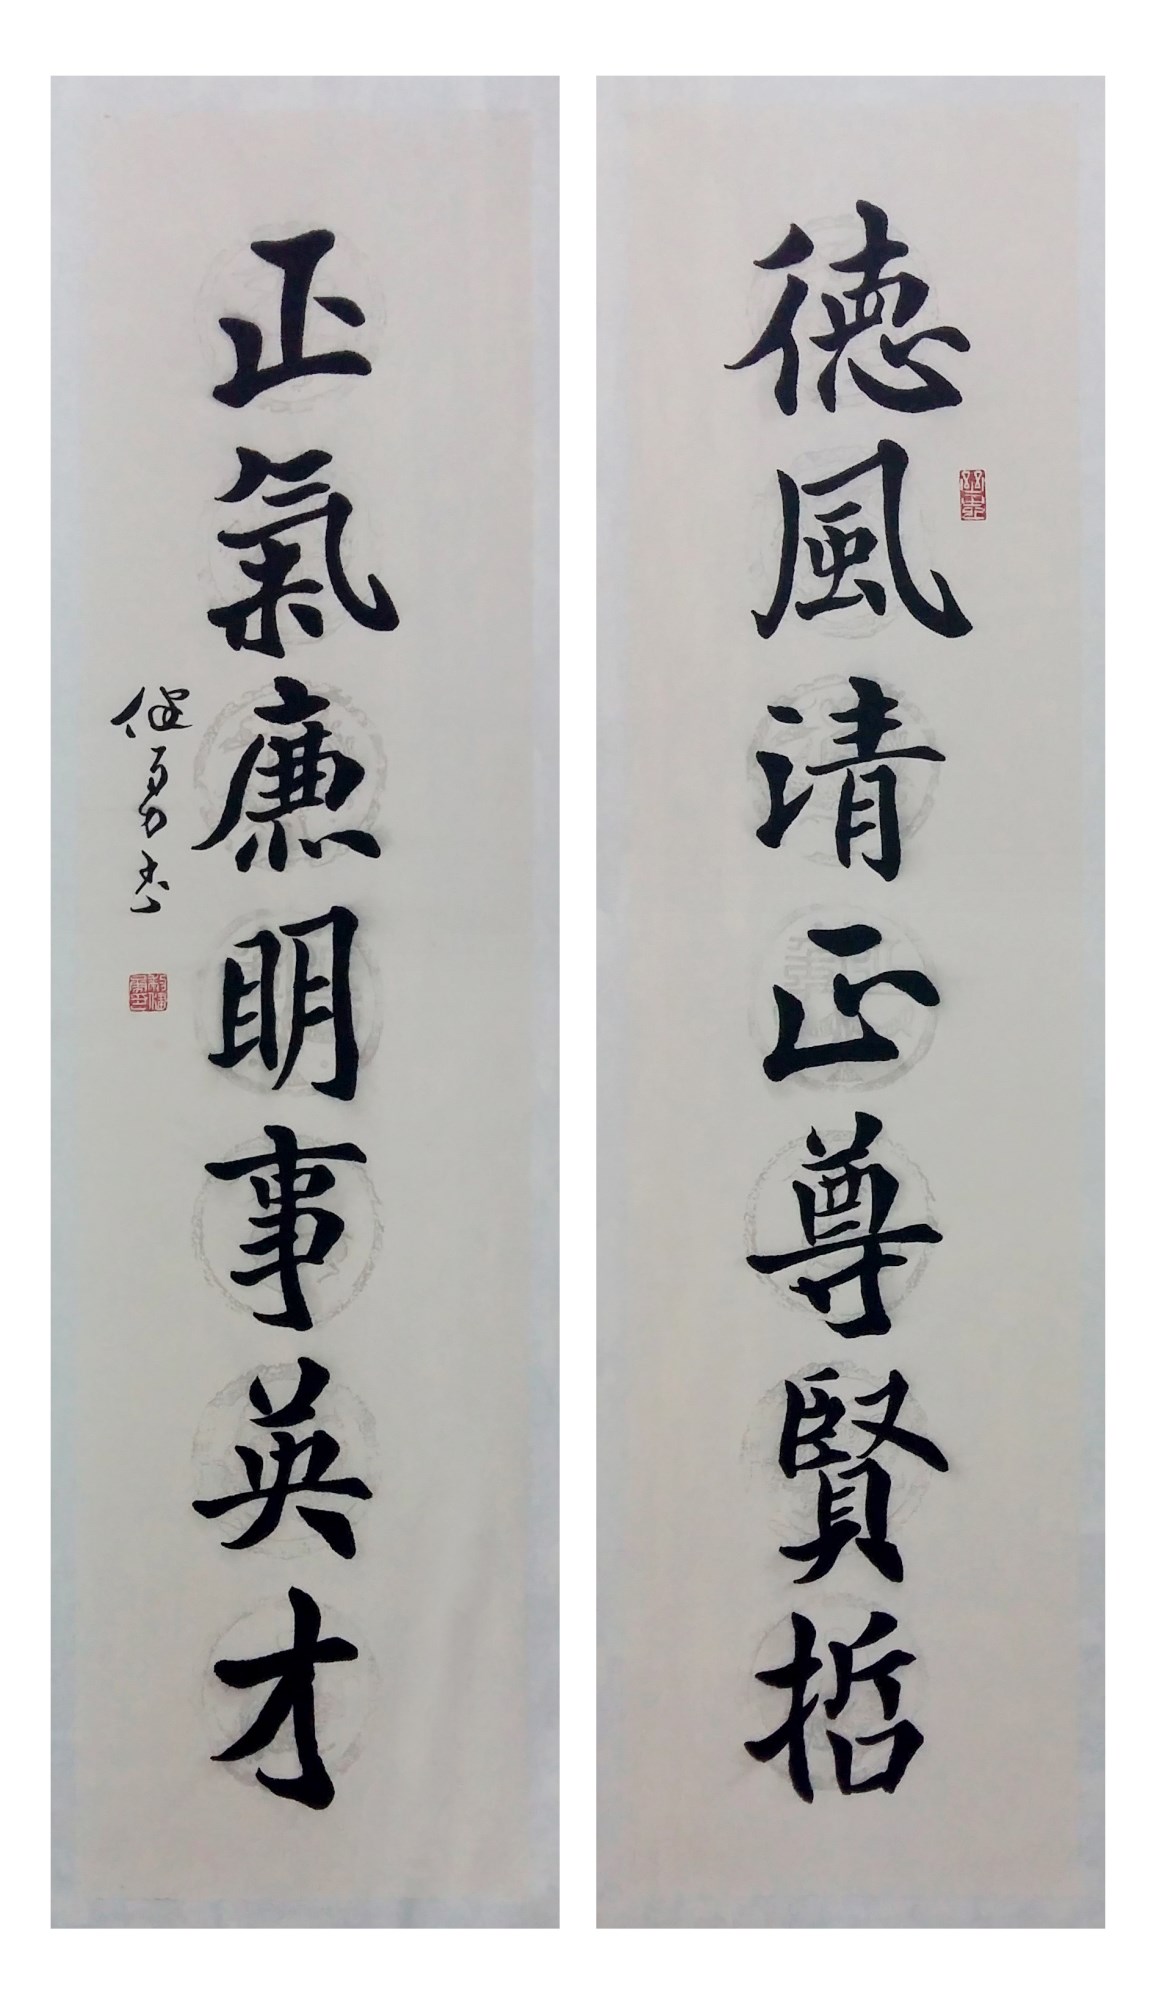 德風清正尊賢哲
正氣廉明事英才
健勇書